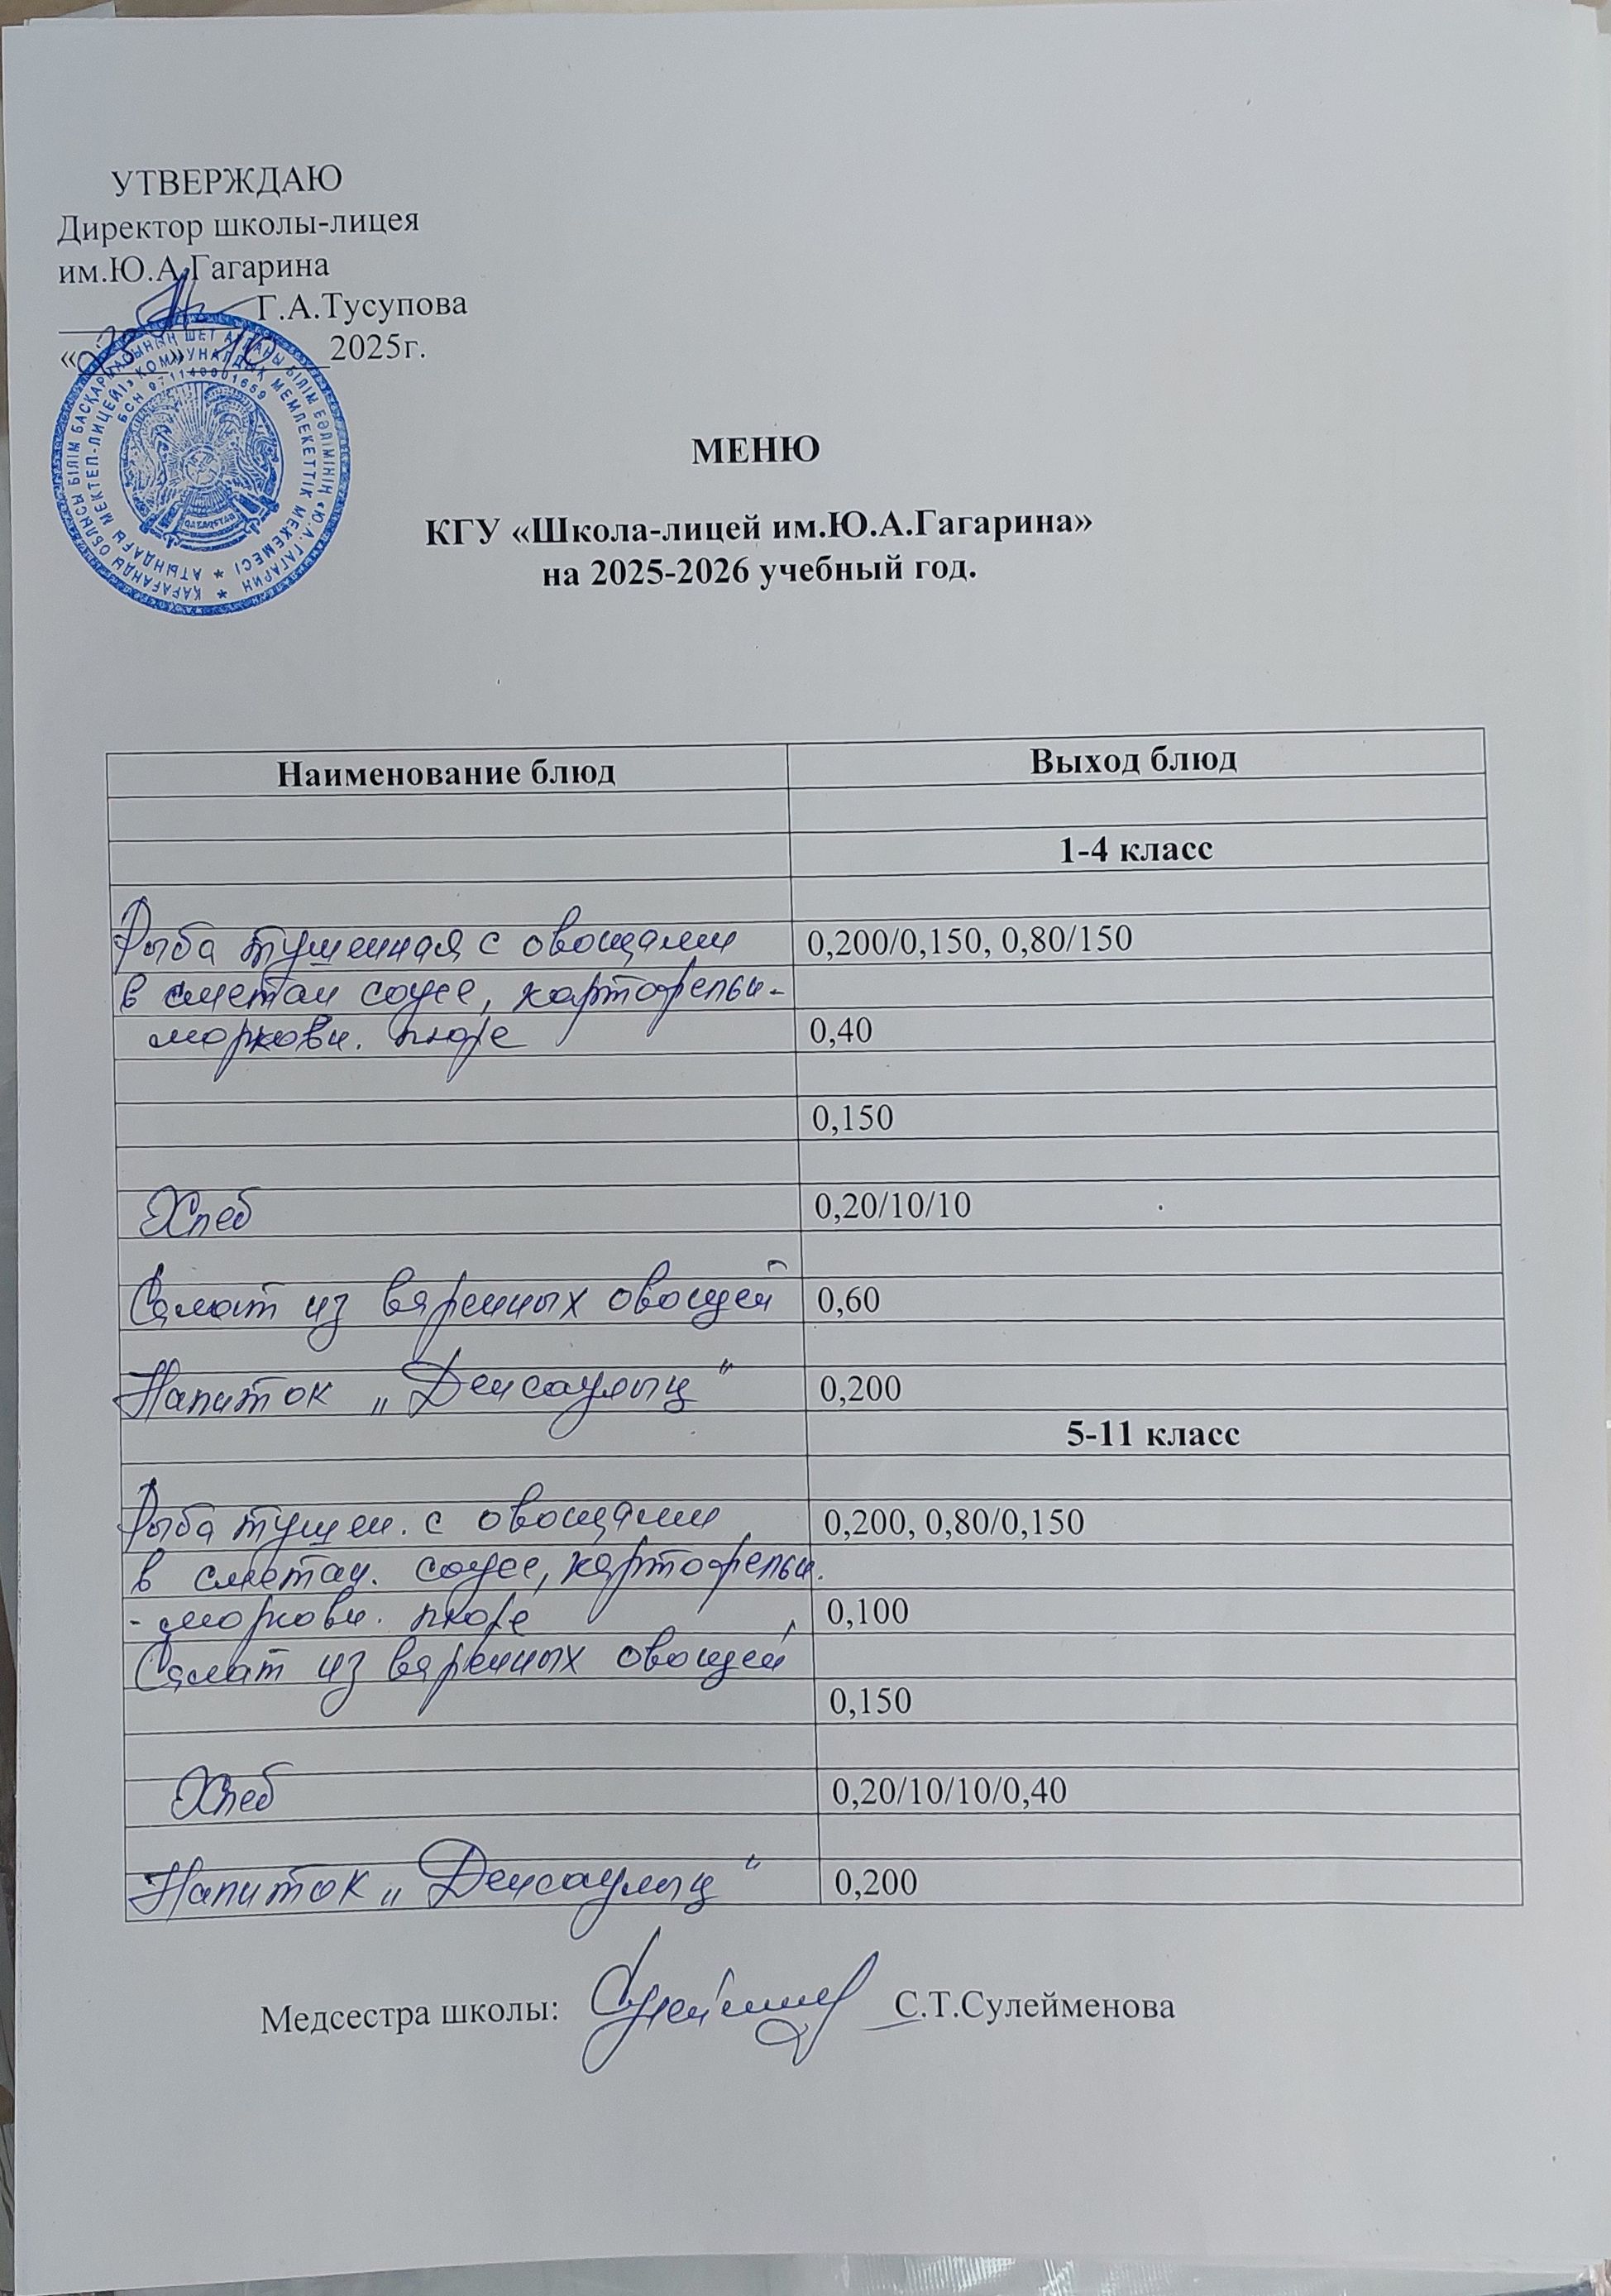 УТВЕРЖДАЮ
Директор школы-лицея
им.Ю.А.Гагарина
Г.А.Тусупова
«23» 10 2025г.
ҚАРАҒАНДЫ ОБЛЫСЫ БІЛІМ БАСҚАРМАСЫНЫҢ ШЕТ АУДАНЫ БІЛІМ БӨЛІМІНІҢ «Ю.А.ГАГАРИН
АТЫНДАҒЫ МЕКТЕП-ЛИЦЕЙІ» КОММУНАЛДЫҚ МЕМЛЕКЕТТІК МЕКЕМЕСІ
БСН 971140001659
QAZAQSTAN
МЕНЮ
КГУ «Школа-лицей им.Ю.А.Гагарина»
на 2025-2026 учебный год.
Наименование блюд Выход блюд
1-4 класс
Рыба тушенная с овощами 0,200/0,150, 0,80/150
в сметан соусе, картофельн-
моркови. пюре 0,40
0,150
Хлеб 0,20/10/10
Салат из варенных овощей 0,60
Напиток „Денсаулық" 0,200
5-11 класс
Рыба тушен. с овощами 0,200, 0,80/0,150
в сметан. соусе, картофельн.
-морковн. пюре 0,100
Салат из варенных овощей
0,150
Хлеб 0,20/10/10/0,40
Напиток „Денсаулық" 0,200
Медсестра школы: С.Т.Сулейменова